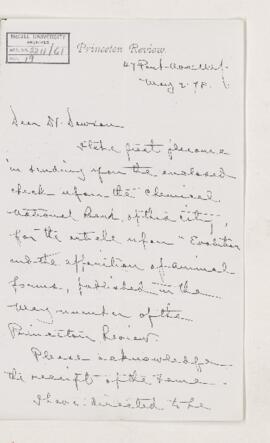 McGILL UNIVERSITY
ARCHIVES
ACC. NO. 2211/61
REF. 19
Princeton Review.
47 Park Row, N.Y.
May 2. 78.
Dear Dr. Dawson
I take great pleasure
in sending you the enclosed
check upon the Chemical
National Bank, of this city,
for the article upon "Evolution
and the apparition of animal
forms, published in the
May number of the
Princeton Review.
Please acknowledge
the receipt of the same.
I have directed to be